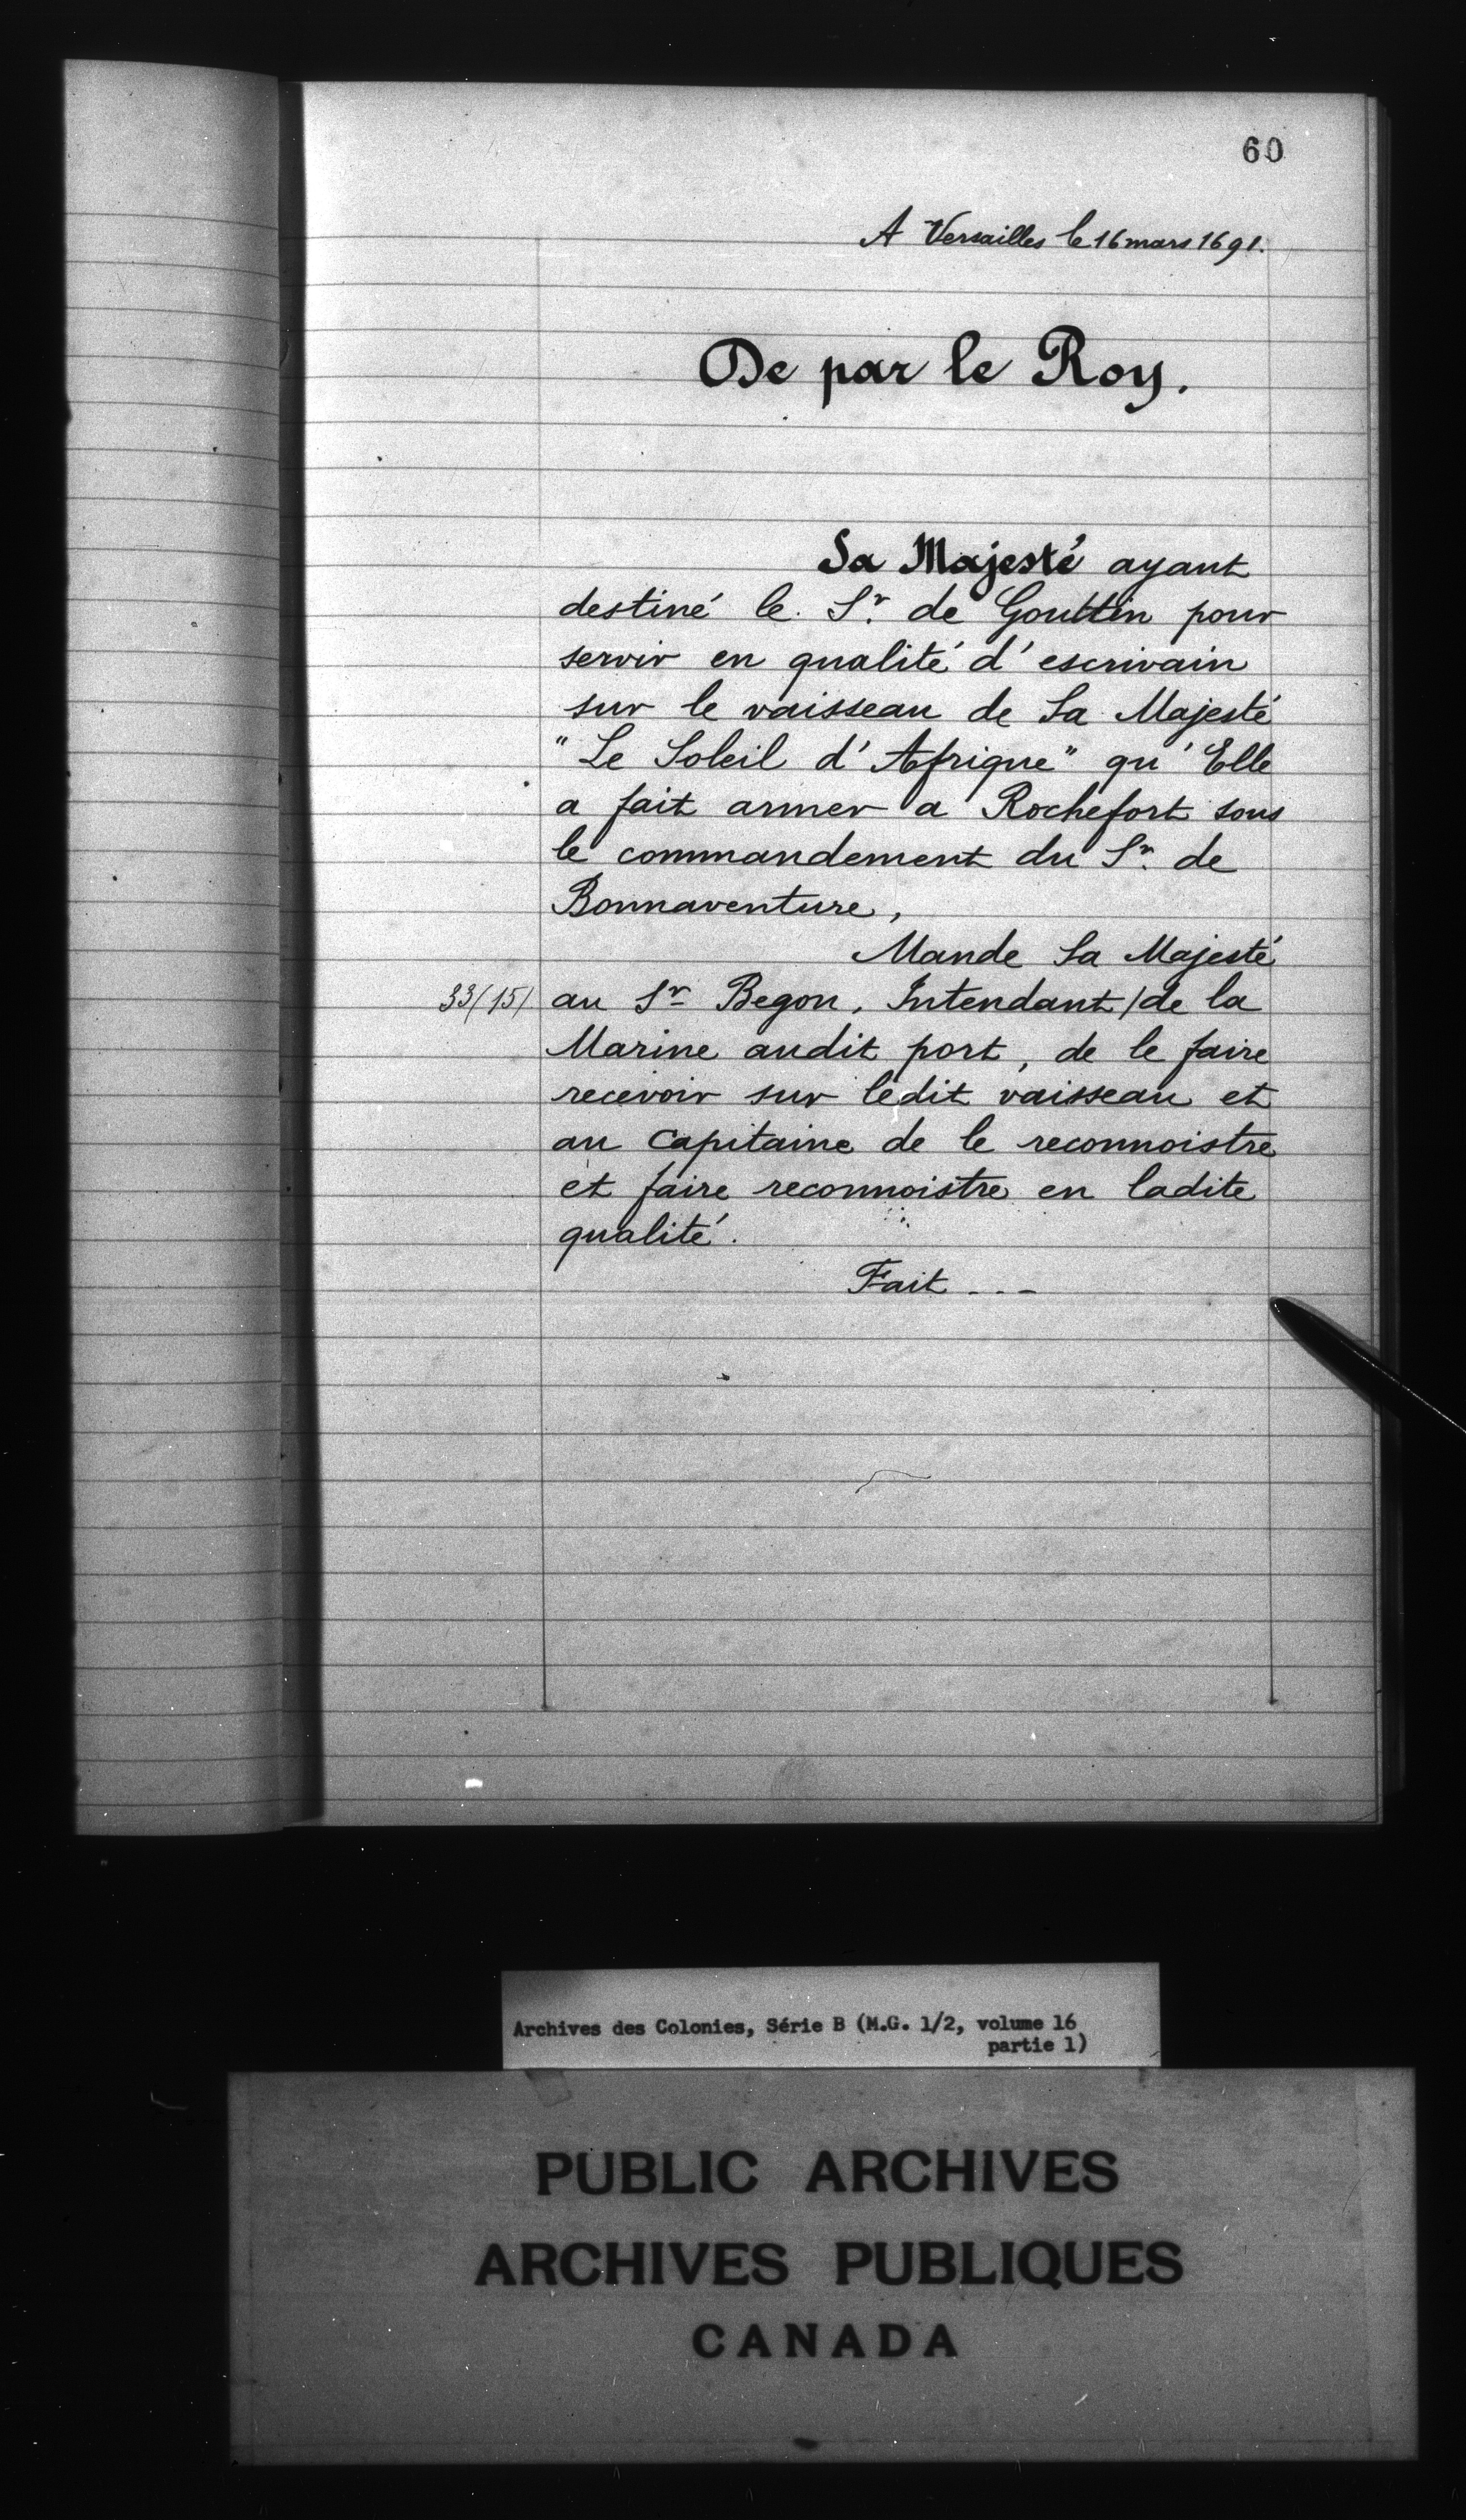 60
A Versailles le 16 mars 1691.
De par le Roy.
Sa Majesté ayant
destiné le Sr. de Gouttin pour
servir en qualité d'escrivain
sur le vaisseau de Sa Majesté
"Le Soleil d'Afrique" qu'Elle
a fait armer a Rochefort sous
le commandement du Sr. de
Bonnaventure,
Mande Sa Majesté
33/15/ au Sr Begon, Intendant/de la
Marine audit port, de le faire
recevoir sur ledit vaisseau et
au Capitaine de le reconnoistre
et faire reconnoistre en ladite
qualité.
Fait ---
Archives des Colonies, Série B (M.G. 1/2, volume 16
partie 1)
PUBLIC ARCHIVES
ARCHIVES PUBLIQUES
CANADA